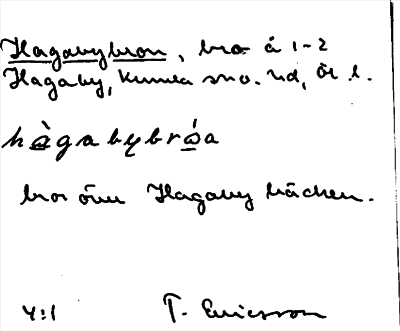 Hagabybron, bro å 1-2
Hagaby, Kumla sn o. hd, Ör l.
hàgabybróa
bro över Hagabybäcken.
4:1 T. Ericsson